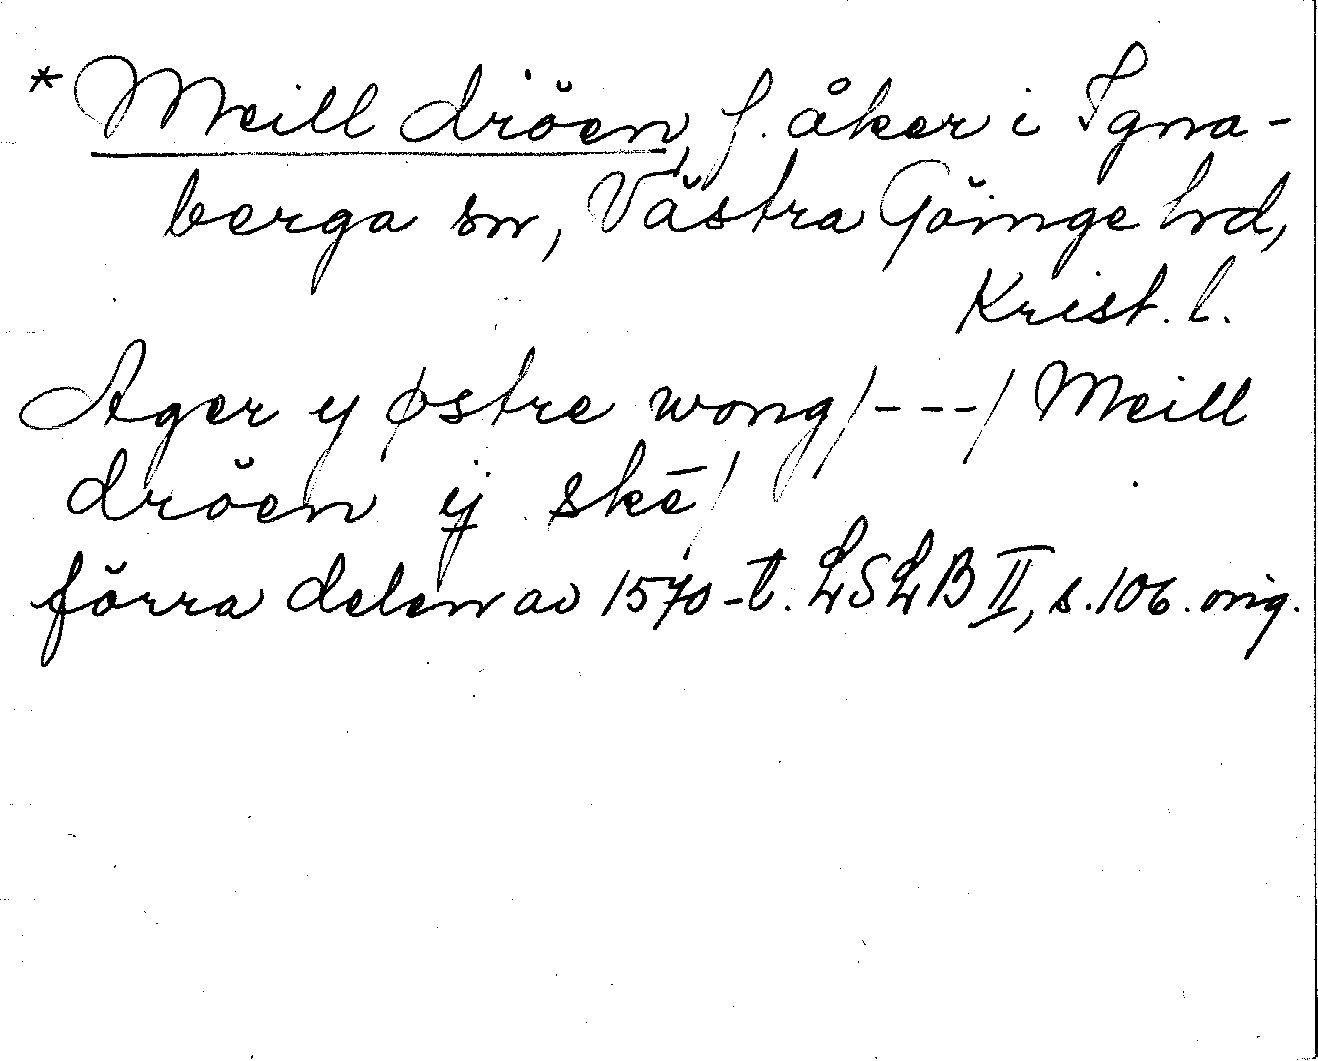 *Meill dröen, f. åker i Igna-
berga sn, Västra Göinge hd,
Krist. l.
Ager y østre wong/---/Meill
dröen ij skē/
förra delen av 1570-t. LSLB II, s. 106. orig.